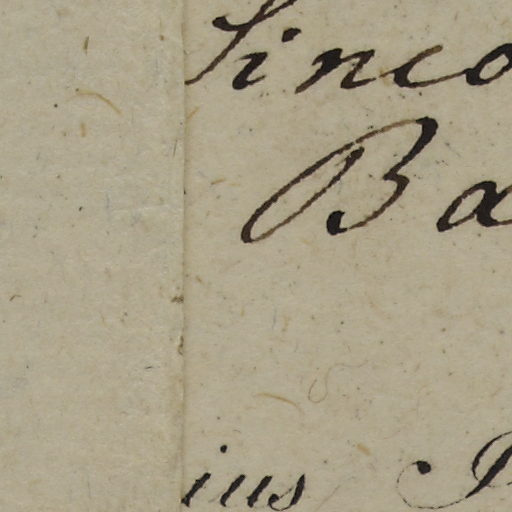 Linco
Ba
ius